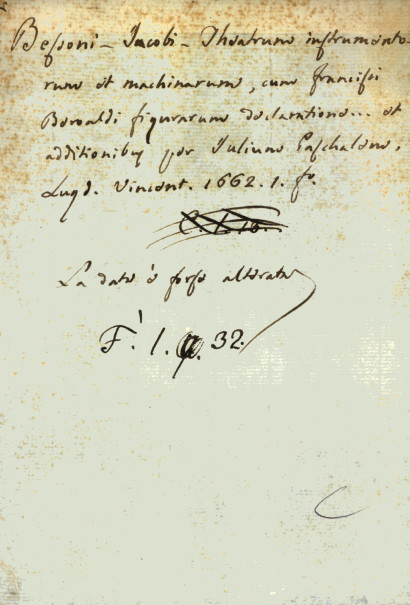 Bessoni - Jacobi - Theatrum instrumento-
rum et machinarum, cum Francisci
Beroaldi figurarum declaratione... et
additionibus per Iulium Paschalem.
Lugd. Vincent. 1662. 1. fo.
La data è forse alterata
F. 1. 32.